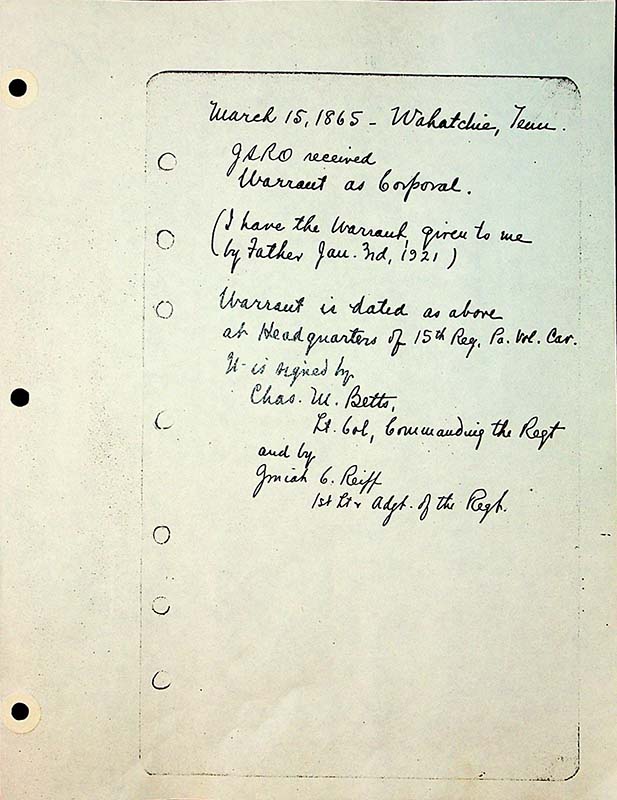 March 15, 1865 - Wahatchie, Tenn.
JSRO received
Warrant as Corporal.
(I have the Warrant, given to me
by Father Jan. 3rd, 1921)
Warrant is dated as above
at Headquarters of 15th Reg. Pa. Vol. Cav.
It is signed by
Chas. M. Betts,
Lt. Col, Commanding the Regt
and by
C. Reiff
1st Lt & Adgt. of the Regt.